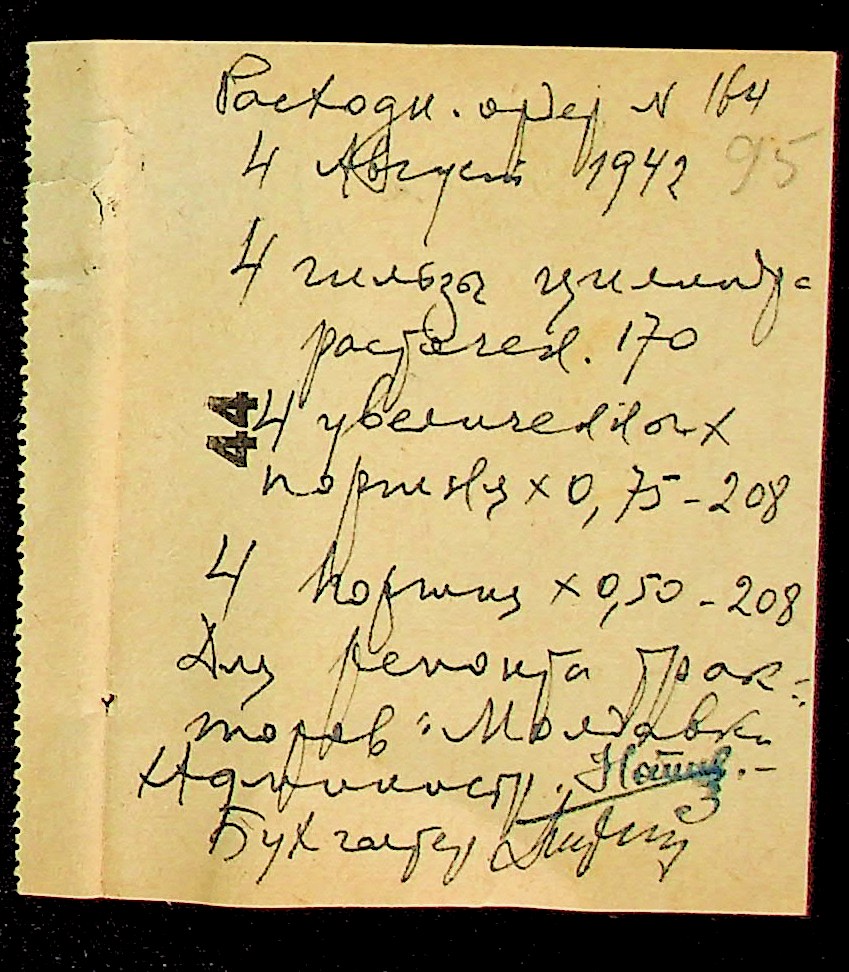 Расходн. ордер N 164
4 Август 1942 95
4 гильзы цилиндр-
расточен. 170
44
4 увеличенных
поршня х 0,75 - 208
4 поршня х 0,50 - 208
Для ремонта трак-
торов "Молдавки
Администр.
Бухгалтер